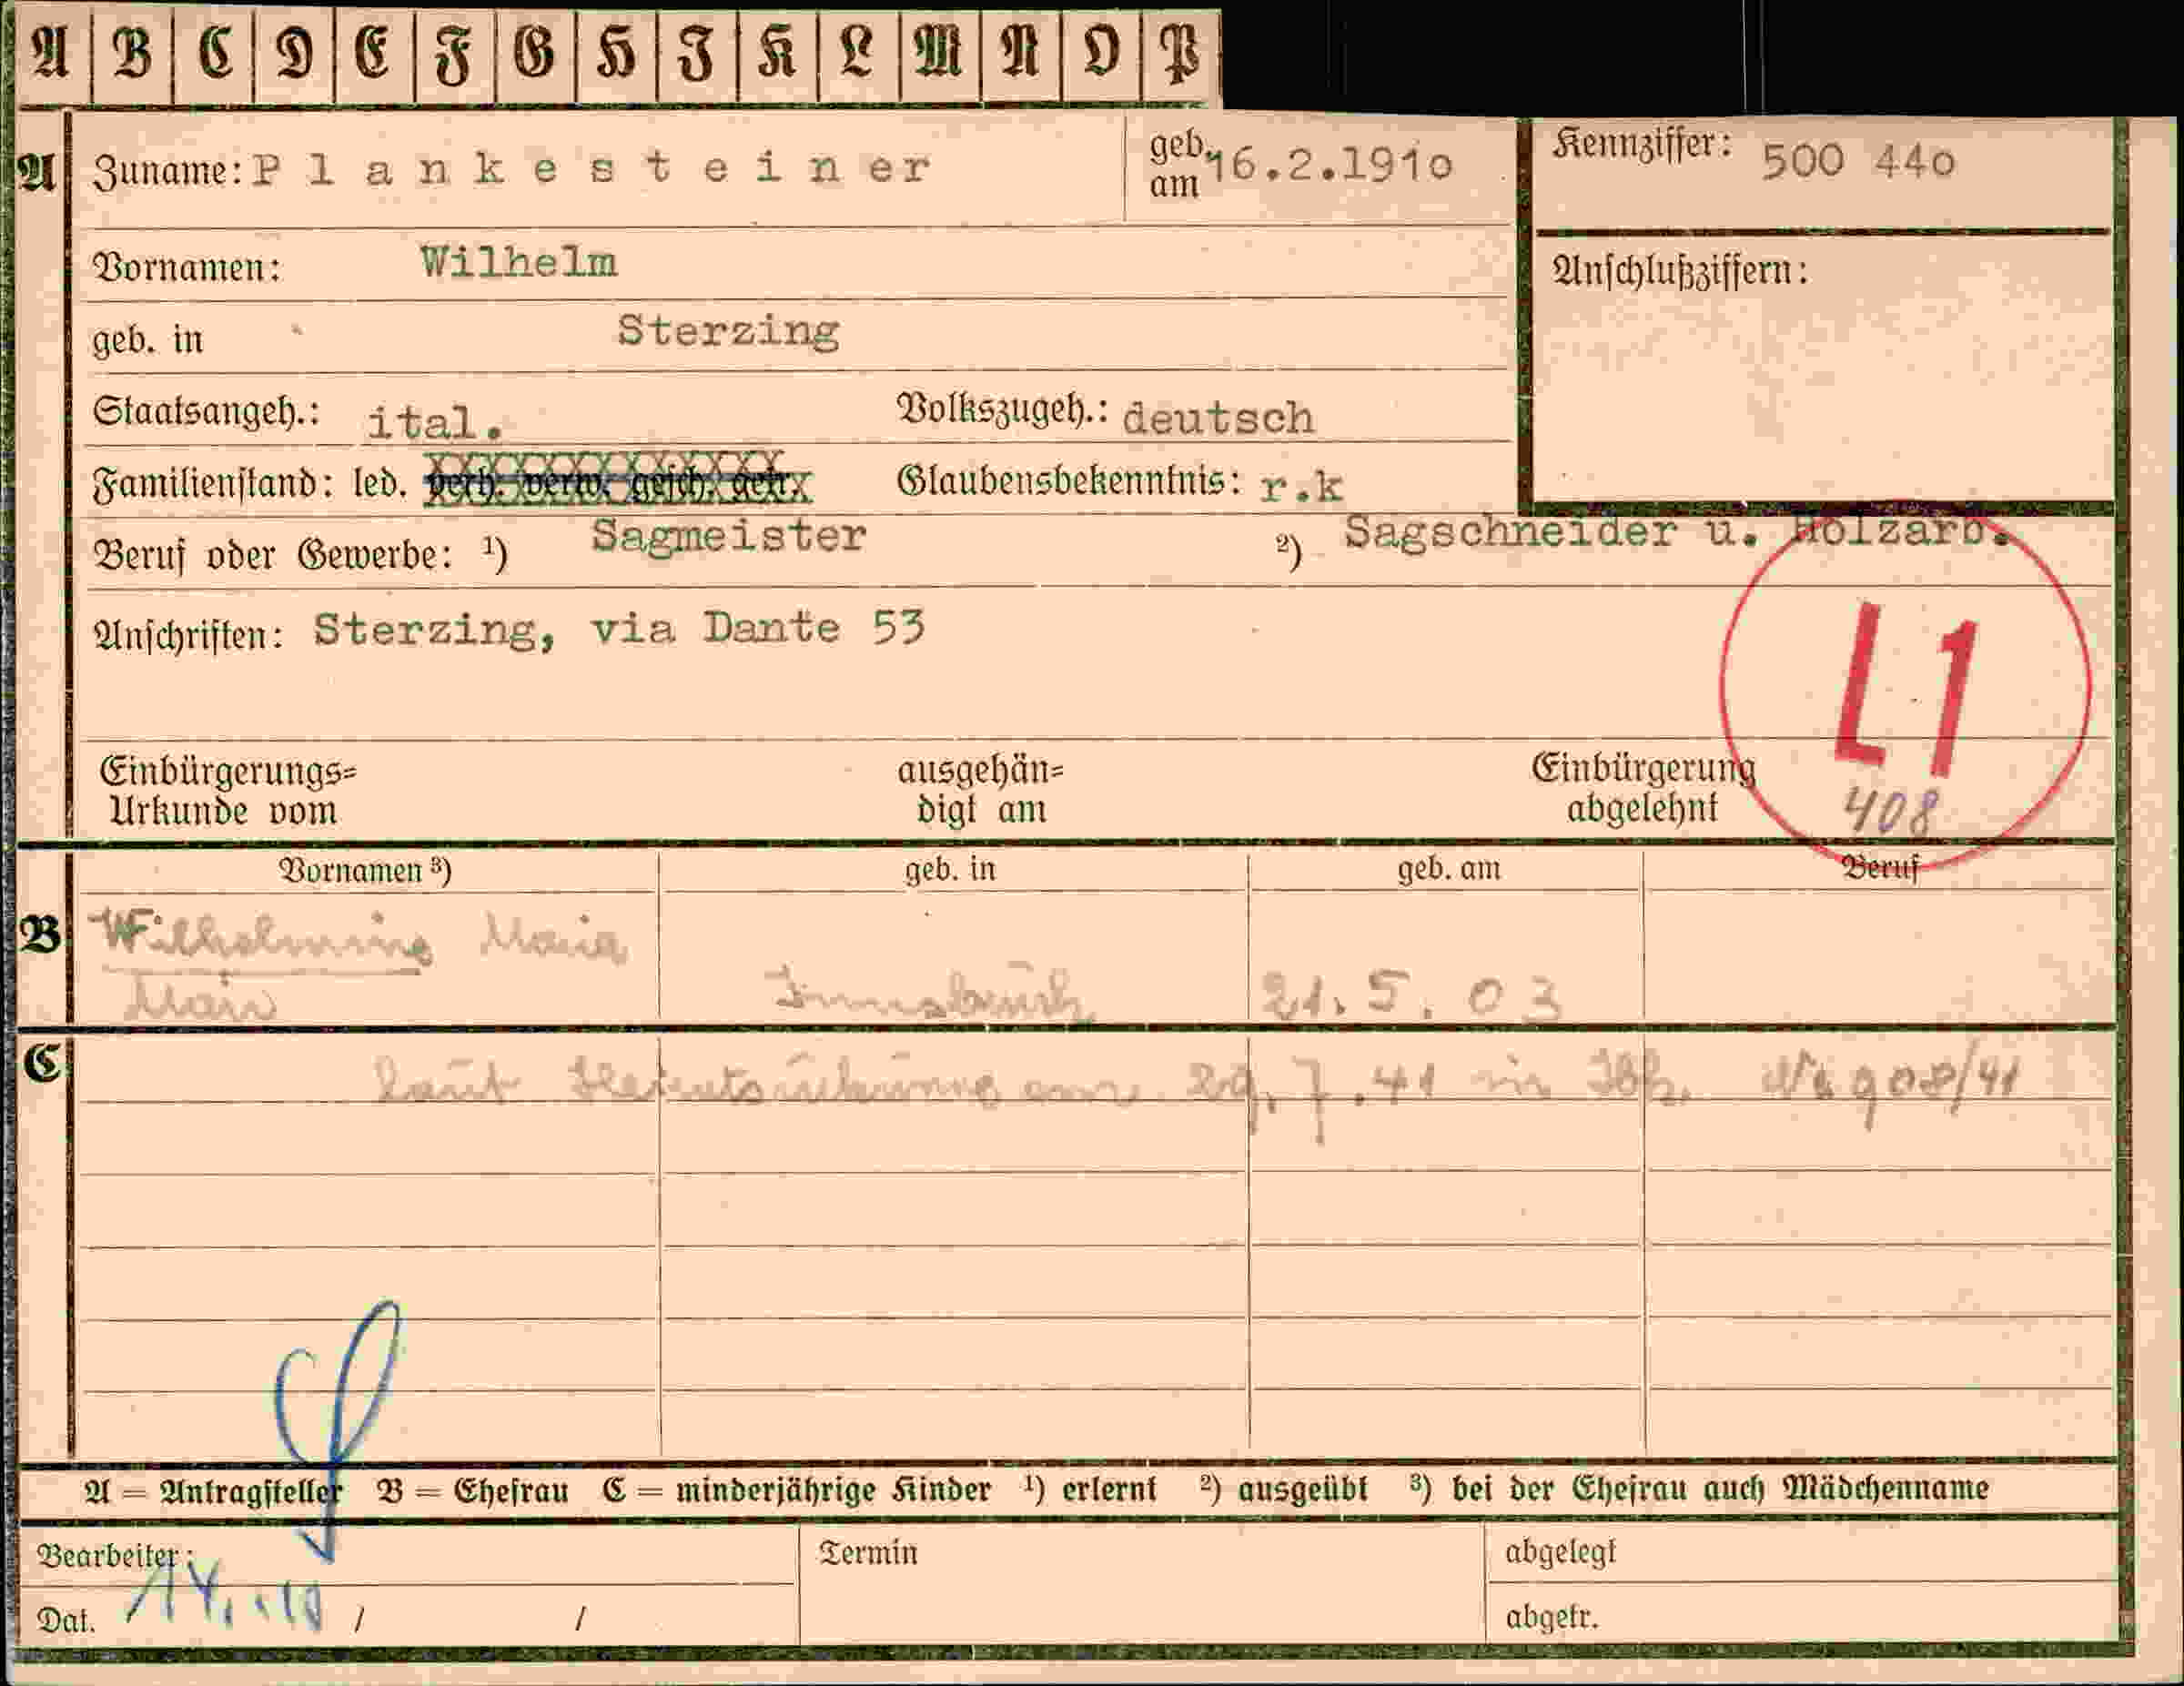 A B C D E F G H I K L M N O P
A Zuname: Plankesteiner geb. am 16.2.1910 Kennziffer: 500 440
Vornamen: Wilhelm Anschlußziffern:
geb. in Sterzing
Staatsangeh.: ital. Volkszugeh.: deutsch
Familienstand: led. verh. verw. gesch. getr. Glaubensbekenntnis: r.k
Beruf oder Gewerbe: 1) Sagmeister 2) Sagschneider u. Holzarb.
Anschriften: Sterzing, via Dante 53
L1
Einbürgerungs= ausgehän= Einbürgerung
Urkunde vom digt am abgelehnt 408
Vornamen 3) geb. in geb. am Beruf
B Wilhelmine Maria
Mair Innsbruck 21.5.03
C laut Heiratsurkunde am 29.7.41 in Ibk. 908/41
A = Antragsteller B = Ehefrau C = minderjährige Kinder 1) erlernt 2) ausgeübt 3) bei der Ehefrau auch Mädchenname
Bearbeiter: Termin abgelegt
Dat. / / abgetr.